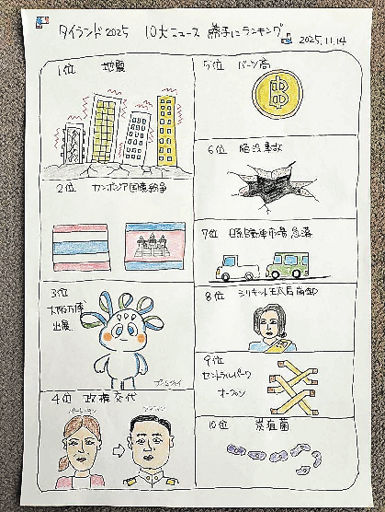 タイランド2025 10大ニュース 勝手にランキング
2025.11.14
1位 地震
2位 カンボジア国境紛争
3位
大阪万博
出展
プームジャイ
4位 政権交代
5位 バーツ高
฿
6位 陥没事故
7位 自動車市場急落
8位 シリキット王太后崩御
9位
セントラルパーク
オープン
10位 炭疽菌